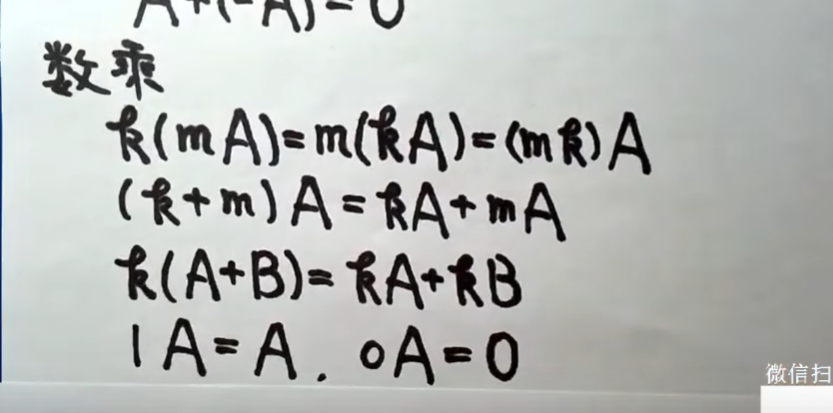 A+(-A)=0
数乘
k(mA)=m(kA)=(mk)A
(k+m)A=kA+mA
k(A+B)=kA+kB
1A=A. 0A=0
微信扫